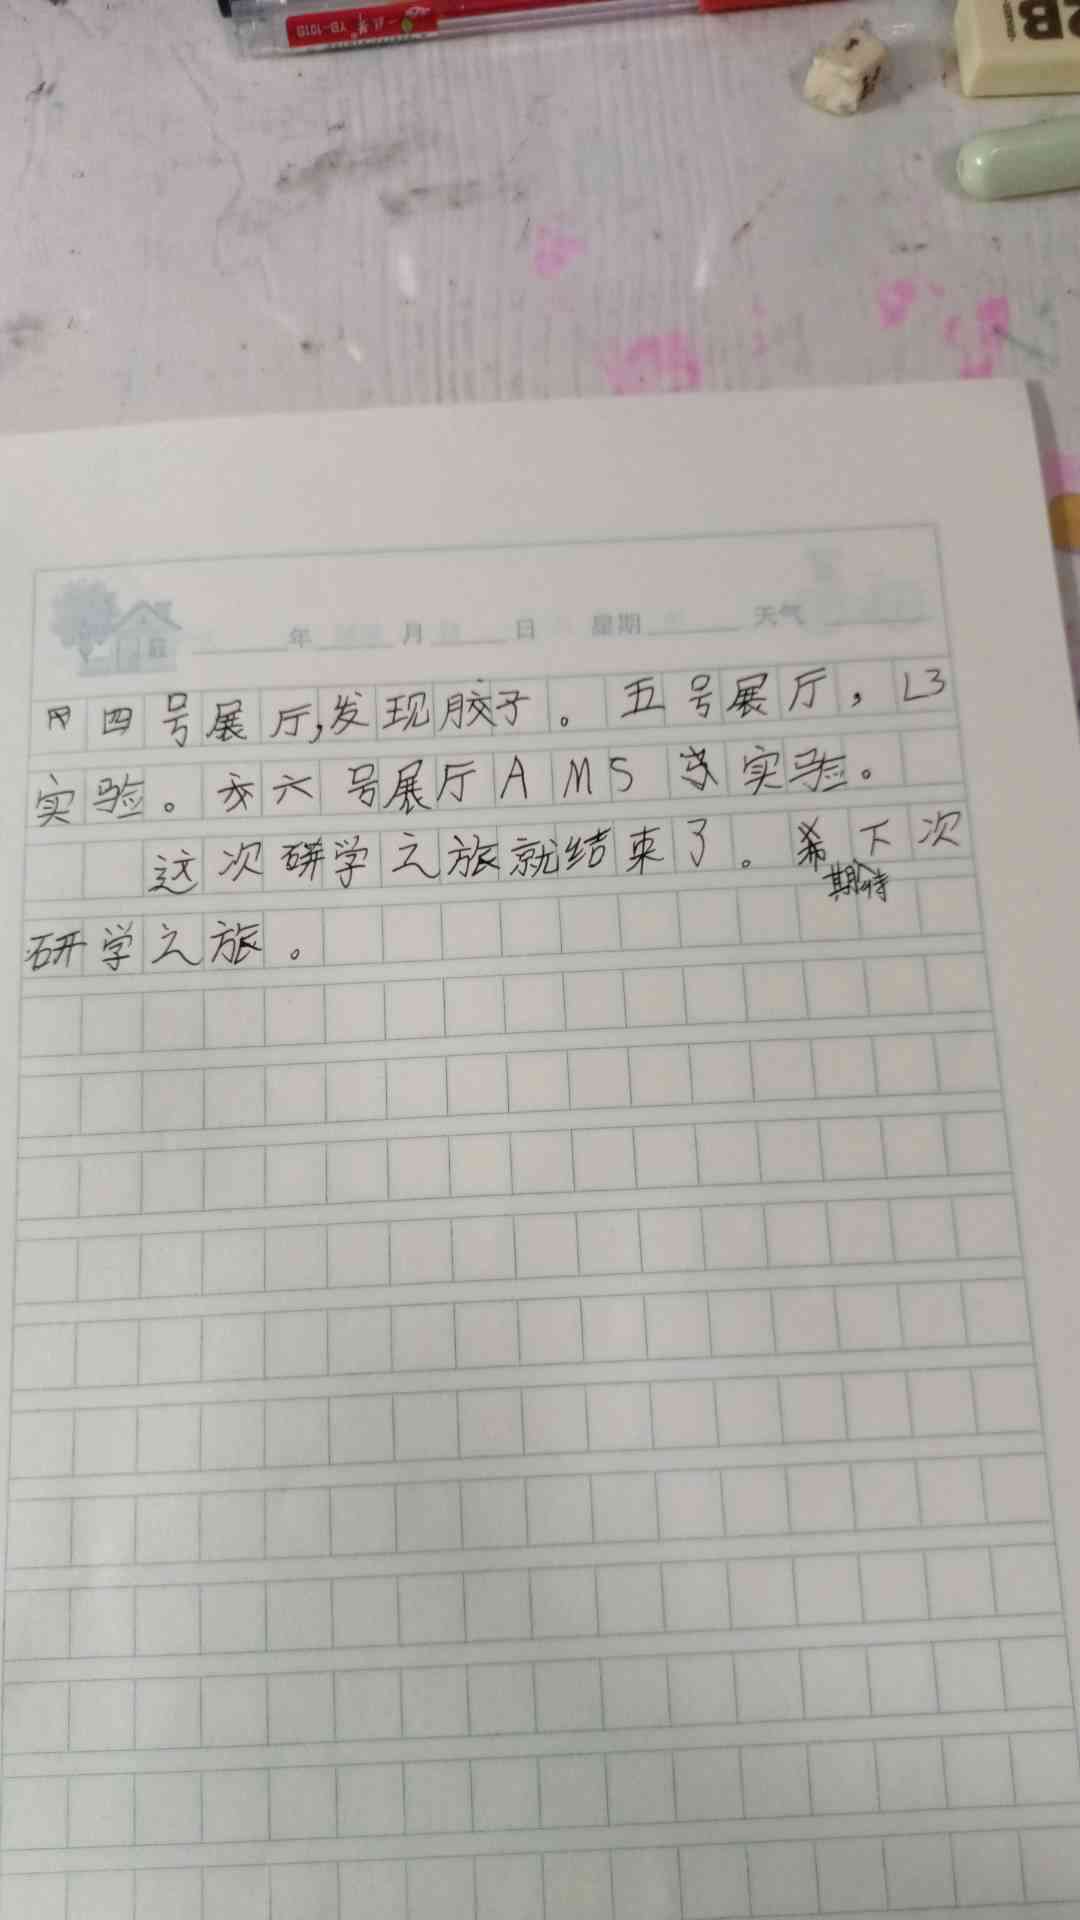 一虹苹 YB-101S
2B
年 月 日 星期 天气
四号展厅,发现胶子。五号展厅,L3
实验。六号展厅AMS实验。
这次研学之旅就结束了。期待下次
研学之旅。